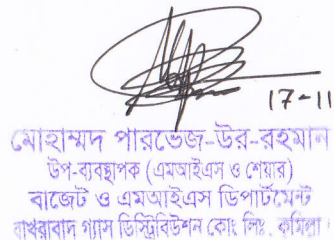 17-11
মোহাম্মদ পারভেজ-উর-রহমান
উপ-ব্যবস্থাপক (এমআইএস ও শেয়ার)
বাজেট ও এমআইএস ডিপার্টমেন্ট
বাখরাবাদ গ্যাস ডিস্ট্রিবিউশন কোং লিঃ, কুমিল্লা।